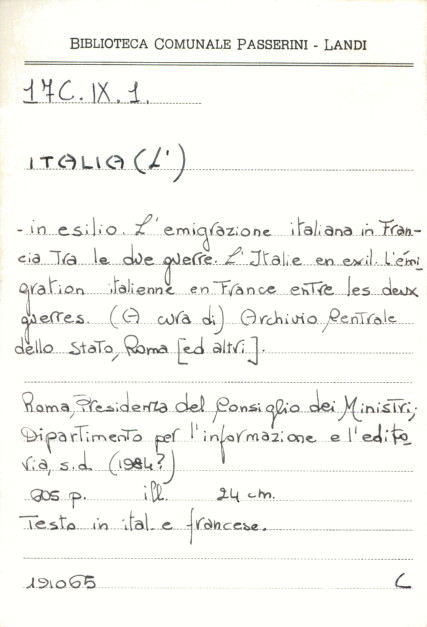 BIBLIOTECA COMUNALE PASSERINI - LANDI
17C.IX.1.
ITALIA (L')
- in esilio. L'emigrazione italiana in Fran-
cia tra le due guerre. L'Italie en exil. L'émi
gration italienne en France entre les deux
guerres. (A cura di) Archivio Centrale
dello Stato, Roma [ed altri].
Roma, Presidenza del Consiglio dei Ministri,
Dipartimento per l'informazione e l'edito
ria, s.d. (1984?)
p. ill. 24 cm.
Testo in ital. e francese.
191065 C